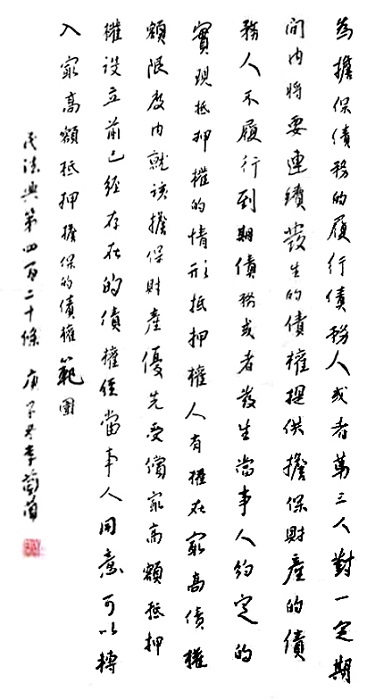 為擔保債務的履行債務人或者第三人對一定期
间内將要連續發生的債權提供擔保財產的債
務人不履行到期債務或者發生當事人約定的
實現抵押權的情形抵押權人有權在最高債權
額限度内就該擔保財產優先受償最高額抵押
權设立前已經存在的債權經當事人同意可以轉
入最高額抵押擔保的債權範圍
民法典第四百二十條 庚子冬李